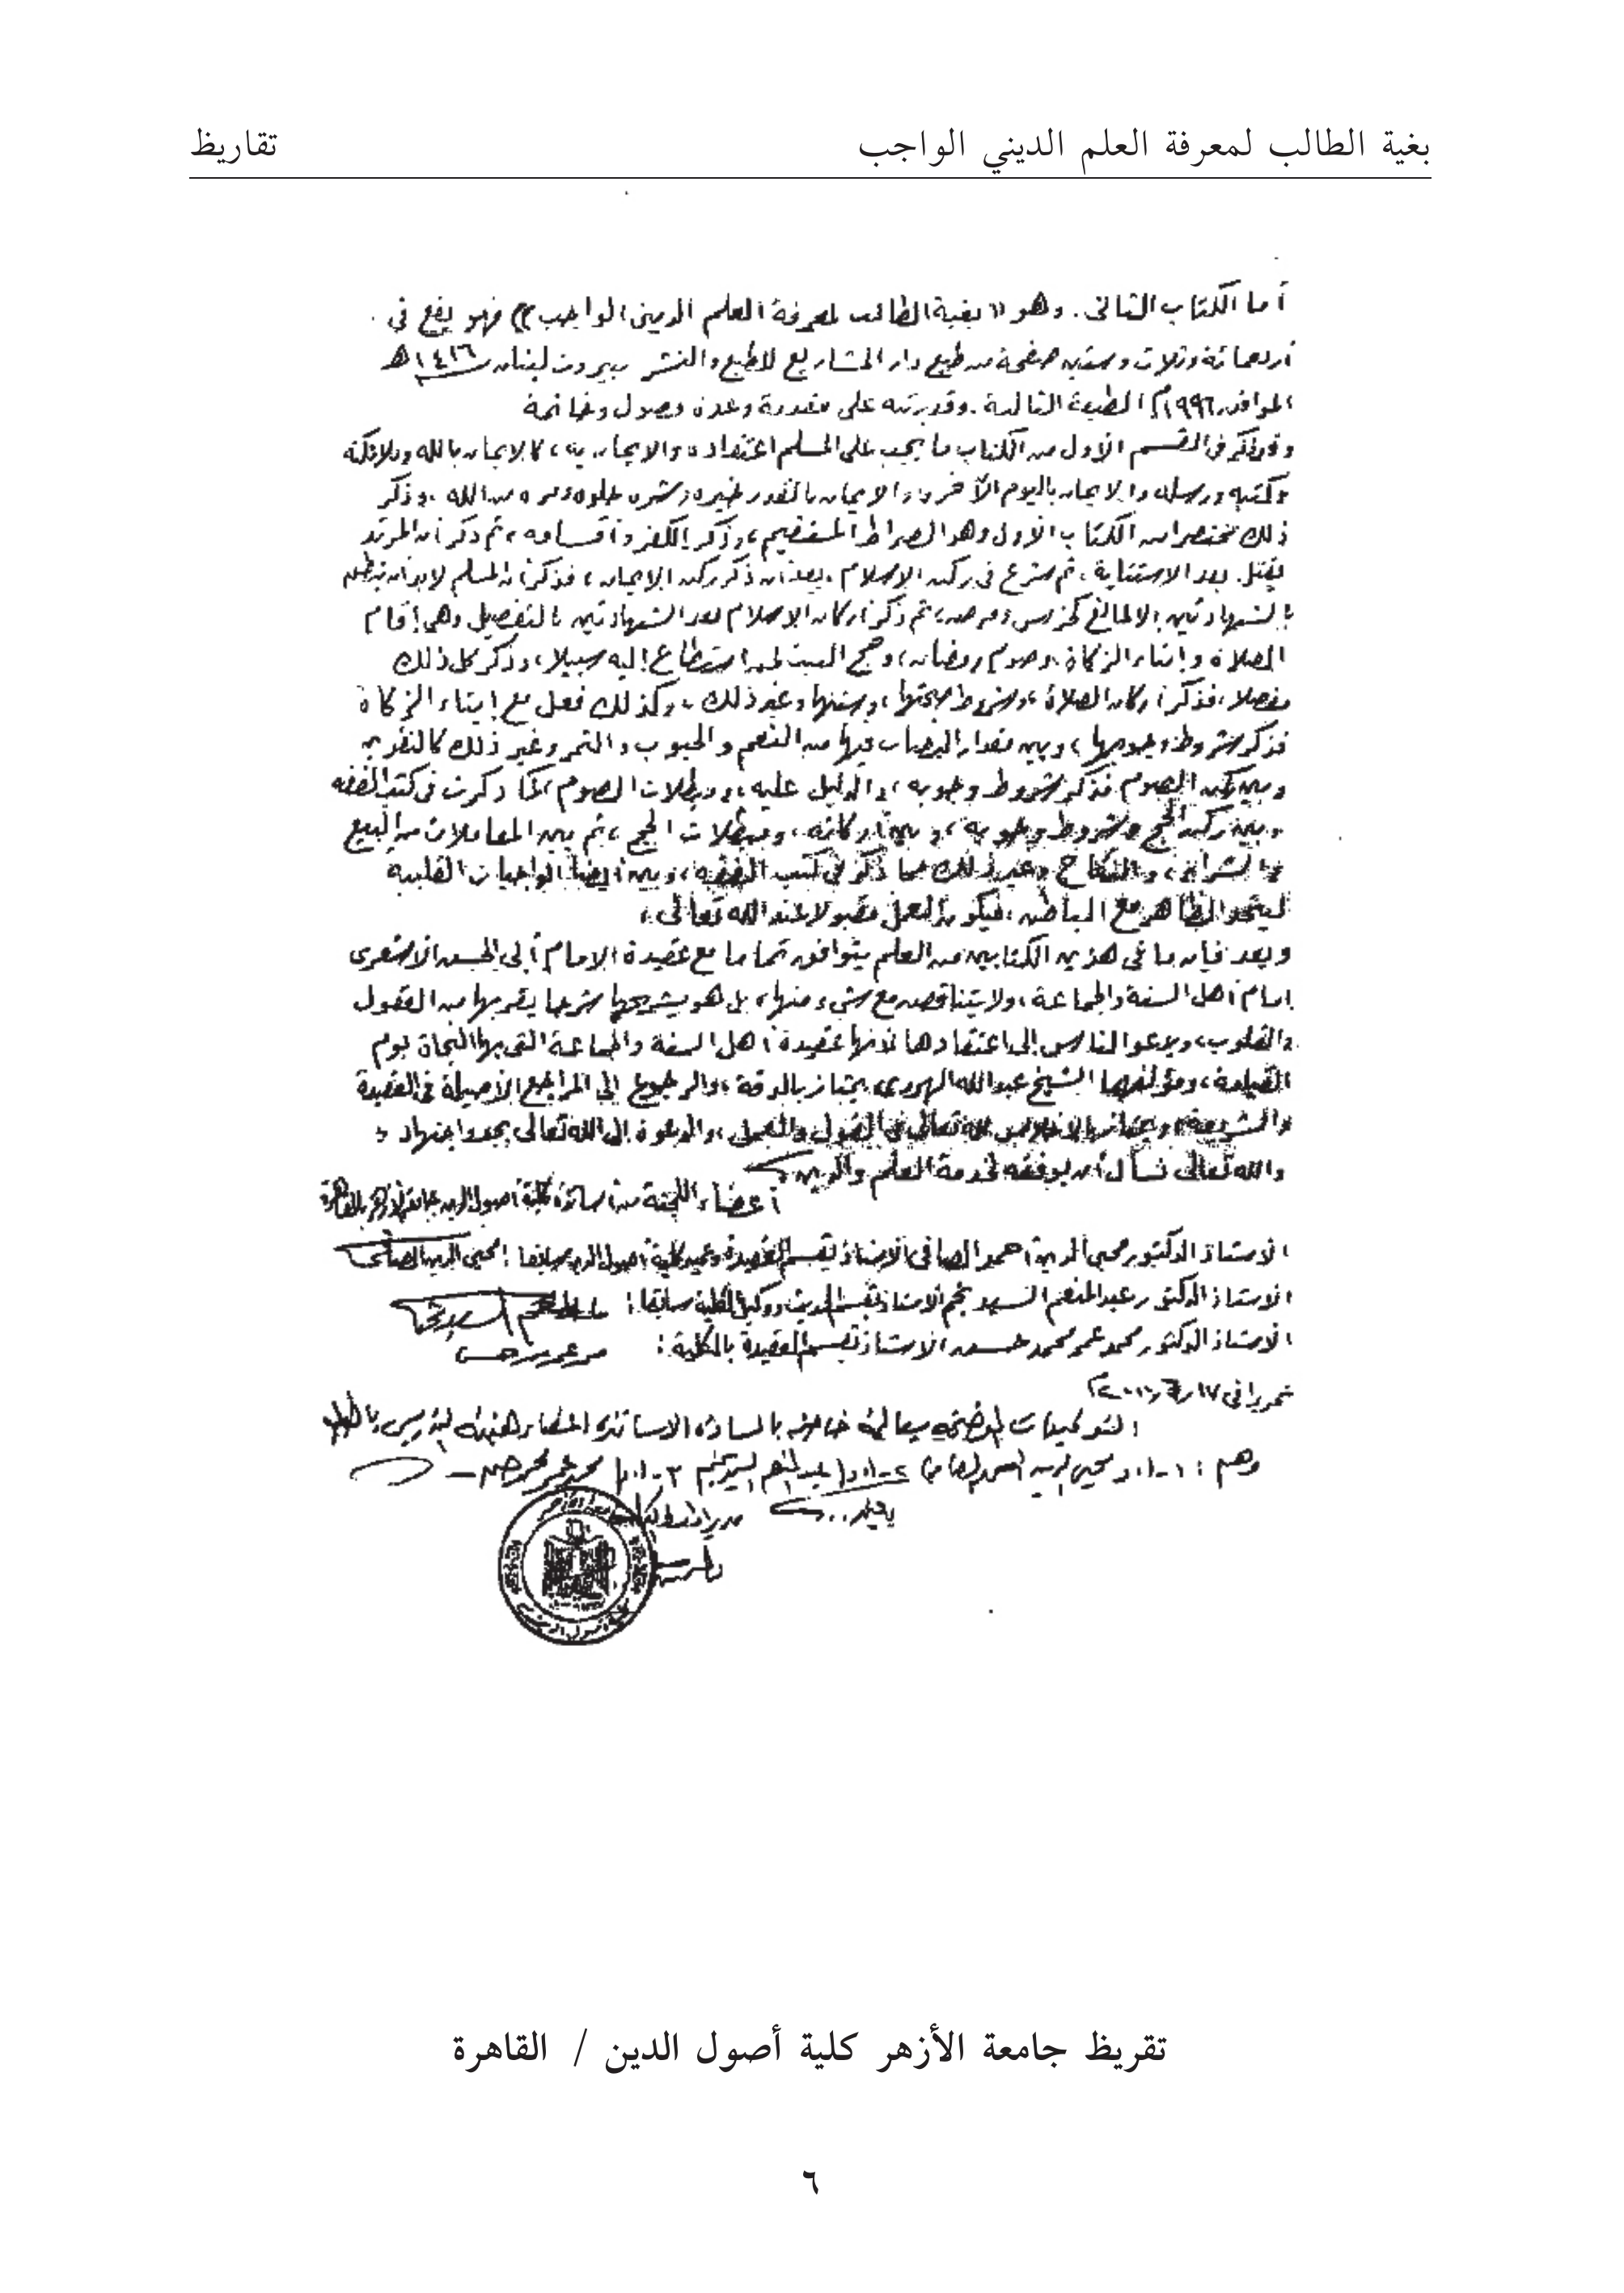 بغية الطالب لمعرفة العلم الديني الواجب
تقاريظ
أما الكتاب الثانى . وهو « بغية الطالب لمعرفة العلم الدينى الواجب » فهو يقع فى
أربعمائة وثلاث وستين صفحة من طبع دار المشاريع للطبع والنشر ببيروت لبنان ١٤١٦ هـ
الموافق ١٩٩٦م الطبعة الثالثة . وقد رتبه على مقدمة وعدة فصول وخاتمة
وقد ذكر فى القسم الأول من الكتاب ما يجب على المسلم اعتقاده والايمان به ، كالايمان بالله وملائكته
وكتبه ورسله والايمان باليوم الآخر ، والايمان بالقدر خيره وشره حلوه ومره من الله . وذكر
ذلك مختصرا من الكتاب الأول وهو الصراط المستقيم ، وذكر الكفر وأقسامه ، ثم ذكر أن المرتد
يقتل بعد الاستتابة ، ثم شرع فى ركن الإسلام ، بعد أن ذكر ركن الإيمان ، فذكر أن المسلم لابد أن ينطق
بالشهادتين إلا لمانع كخرس ومرض ، ثم ذكر أركان الإسلام بعد الشهادتين بالتفصيل وهى إقام
الصلاة وإيتاء الزكاة ، وصوم رمضان ، وحج البيت لمن استطاع إليه سبيلا ، وذكر كل ذلك
مفصلا ، فذكر أركان الصلاة ، وشروط صحتها ، وسننها وغير ذلك ، وكذلك فعل مع إيتاء الزكاة
فذكر شروط وجوبها ، وبين مقدار النصاب فيها من النعم والحبوب والتمر وغير ذلك كالنقدين
وبين ركن الصوم فذكر شروط وجوبه ، والدليل عليه ، ومبطلات الصوم ، كما ذكرت فى كتب الفقه
وبين ركن الحج وشروط وجوبه ، وبين أركانه ، ومبطلات الحج ، ثم بين المعاملات من البيع
والشراء ، والنكاح وغير ذلك مما ذكر فى كتب الفقه ، وبين أيضا الواجبات القلبية
ليتحد الظاهر مع الباطن ، فيكون العمل مقبولا عند الله تعالى ،
وبعد فإن ما فى هذين الكتابين من العلم يتوافق تماما مع عقيدة الإمام أبى الحسن الأشعرى
إمام أهل السنة والجماعة ، ولا يتناقض مع شىء منها ، بل هو يشرحها شرحا يقربها من العقول
والقلوب ، ويدعو الناس إلى اعتقادها لأنها عقيدة أهل السنة والجماعة التى بها النجاة يوم
القيامة ، ومؤلفهما الشيخ عبد الله الهررى يمتاز بالدقة ، والرجوع إلى المراجع الأصيلة فى العقيدة
والشريعة ، ويمتاز بالإخلاص لله تعالى فى القول والعمل ، والدعوة إلى الله تعالى بجد واجتهاد ،
والله تعالى نسأل أن يوفقه لخدمة العلم والدين
أعضاء اللجنة من أساتذة كلية أصول الدين جامعة الأزهر بالقاهرة
الأستاذ الدكتور محيى الدين أحمد الصافى الأستاذ بقسم العقيدة وعميد كلية أصول الدين سابقا : محيى الدين الصافى
الأستاذ الدكتور عبد المنعم السيد نجم الأستاذ بقسم الحديث ووكيل الكلية سابقا :
الأستاذ الدكتور محمد عمر محمد حسن الأستاذ بقسم العقيدة بالكلية :
تحريرا فى ١٧/
التوقيعات الموضحة بعاليه خاصة بالسادة الأساتذة أعضاء هيئة التدريس بالكلية
وهم : ١ - أ.د محيى الدين أحمد الصافى ٢ - أ.د عبد المنعم السيد نجم ٣ - أ.د محمد عمر محمد حسن
تقريظ جامعة الأزهر كلية أصول الدين / القاهرة
٦